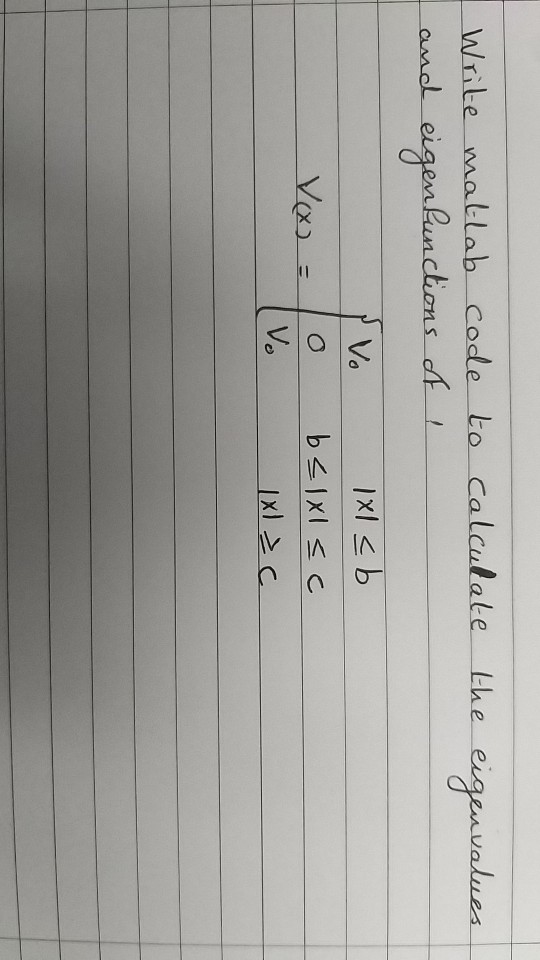 Write matlab code to calculate the eigenvalues
and eigenfunctions of !
V(x) = { V₀ |x| ≤ b
0 b ≤ |x| ≤ c
V₀ |x| ≥ c